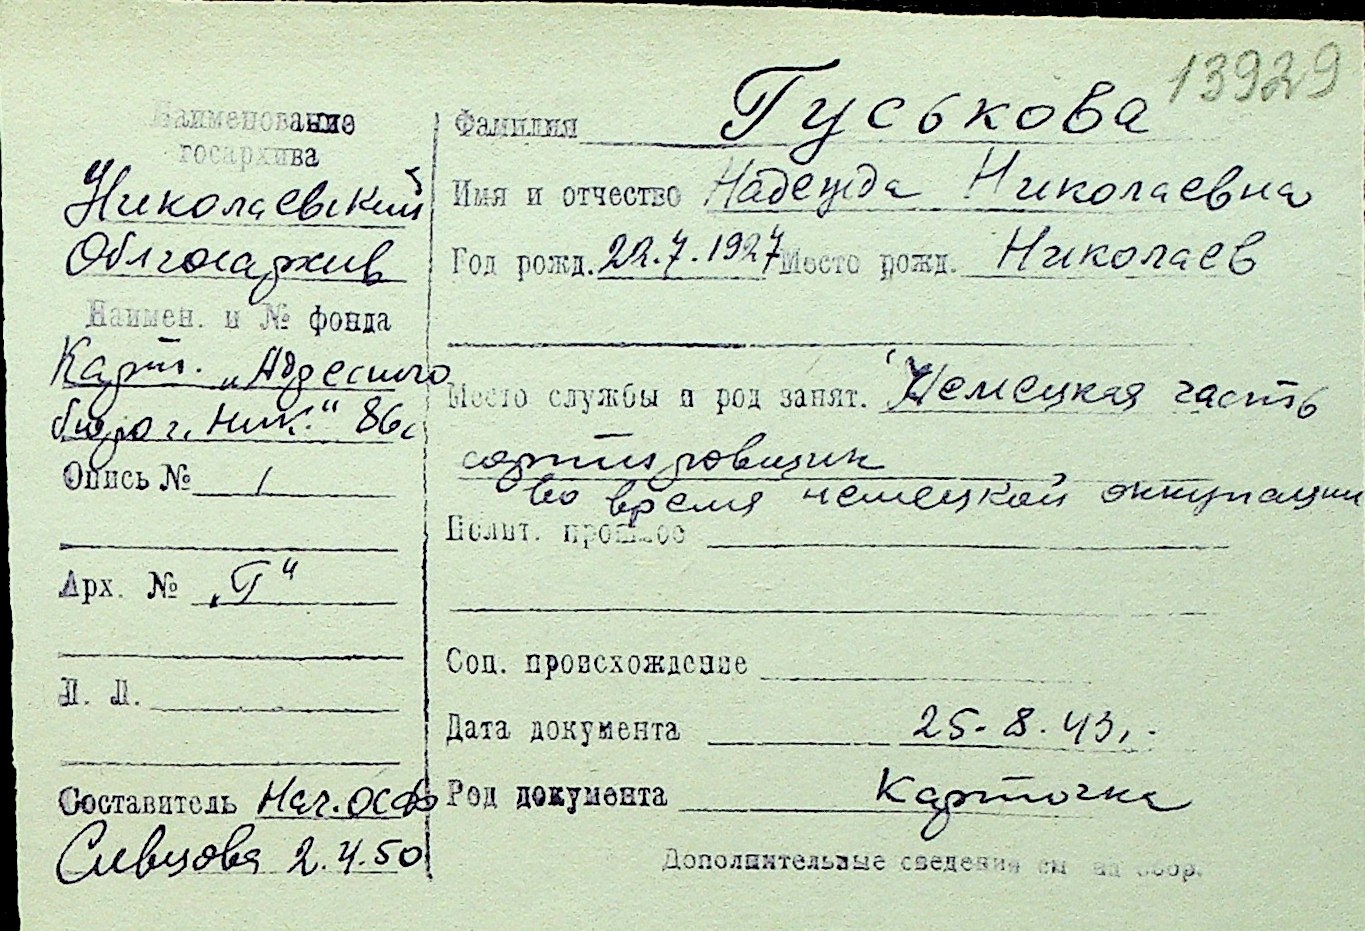 13929
Наименование
госархива
Николаевский
Облгосархив
Наимен. и № фонда
Карт. „Адресного
бюро г. Ник." 86с
Опись № 1
Арх. № „Г"
Л. Л.
Составитель Нач. ОСФ
Сивцова 2.4.50
Фамилия Гуськова
Имя и отчество Надежда Николаевна
Год рожд. 22.7.1927 Место рожд. Николаев
Место службы и род занят. Немецкая часть
сортировщик
во время немецкой оккупации
Полит. прошлое
Соц. происхождение
Дата документа 25-8.43.
Род документа Карточка
Дополнительные сведения см на обор.